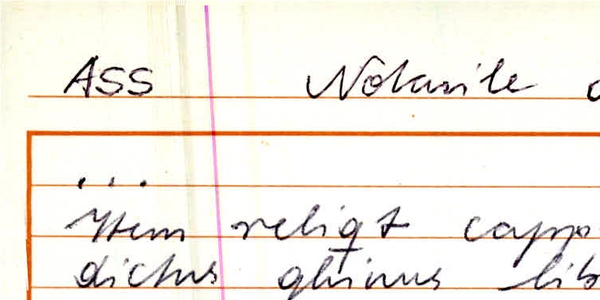 ASS Notarile
...
Item reliqt capp
dictus ghinus lib